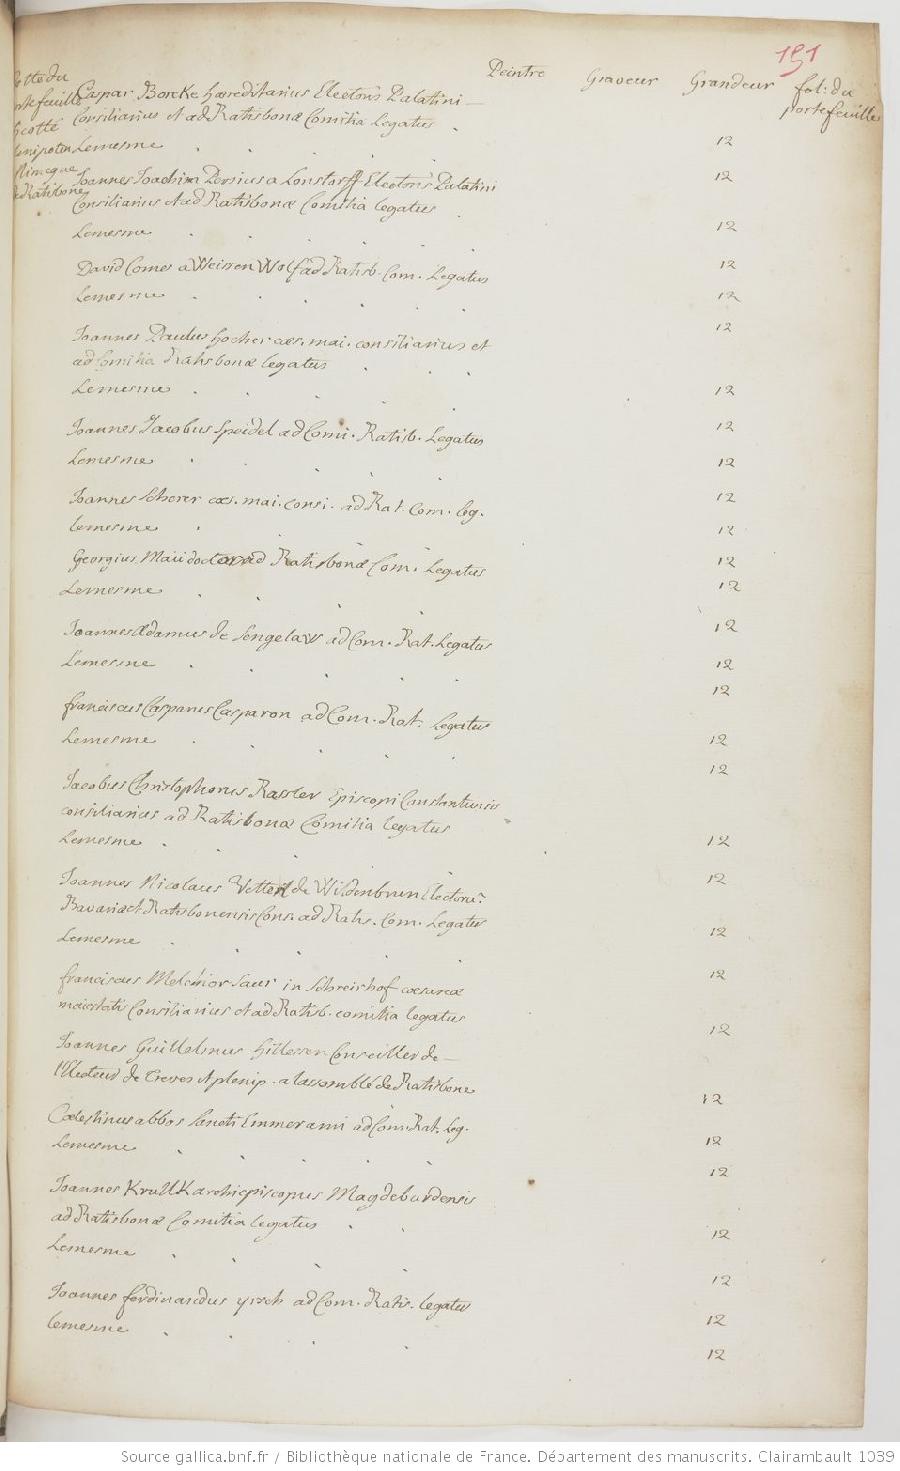 191
Peintre Graveur Grandeur fol. du portefeuille
Cotte du
portefeuille
Caspar Borcke hæreditarius Electoris Palatini
Consiliarius et ad Ratisbonæ Comitia legatus 12
Lemesme 12
Nimegue
de Ratisbone
Joannes Joachim Persius a Lonstorff Electoris Palatini
Consiliarius et ad Ratisbonæ Comitia legatus 12
Lemesme 12
David Comes a Weissen Wolf ad Ratisb. Com. Legatus 12
Lemesme 12
Joannes Paulus hocher cæs. mai. consiliarius et
ad Comitia Ratisbonæ legatus 12
Lemesme 12
Joannes Jacobus Speidel ad Comi. Ratisb. Legatus 12
Lemesme 12
Joannes Scherer cæs. mai. consi. ad Rat. Com. leg. 12
lemesme 12
Georgius ad Ratisbonæ Com. Legatus 12
Lemesme 12
Joannes Adamus de Sengelaws ad Com. Rat. Legatus 12
Lemesme 12
franciscus Casparus Casparon ad Com. Rat. Legatus 12
Lemesme 12
Jacobus Christophorus Rassler Episcopi Constantiensis
consiliarius ad Ratisbonæ Comitia legatus 12
Lemesme 12
Joannes Nicolaus de Wildenbrun Electoris
Bavariæ et Ratisbonensis Cons. ad Ratis. Com. Legatus 12
Lemesme 12
franciscus Melchior Saur in Schreishof cæsareæ
maiestatis Consiliarius et ad Ratisb. comitia legatus 12
Joannes Guillelmus hillessen Conseiller de
l'Electeur de Treves et plenip. a lassemblé de Ratisbone 12
Cœlestinus abbas Sancti Emmerami ad Com. Rat. Leg. 12
Lemesme 12
Joannes Krull K archiepiscopus Magdeburdensis
ad Ratisbonæ Comitia legatus 12
Lemesme 12
Joannes ferdinandus yrsch ad Com. Ratis. legatus 12
lemesme 12
Source gallica.bnf.fr / Bibliothèque nationale de France. Département des manuscrits. Clairambault 1039